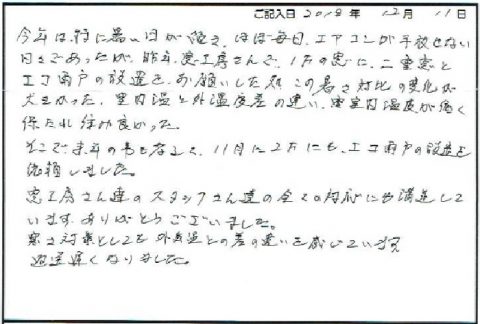 ご記入日 2018年 12月 11日
今年は、特に暑い日が続き、ほぼ毎日、エアコンが手放せない
日々であったが、昨年、窓工房さんで、1Fの窓に、二重窓と
エコ雨戸の設置を、お願いした処、この暑さ対比の変化が
大きかった、室内温と外温度差の違い、室内温度が
保たれ住み良かった。
そこで、来年の暑さ、11月に2Fにも、エコ雨戸の設置を
依頼しました。
窓工房さん達のスタッフさん達の全ての対応にも満足して
います。ありがとうございました。
寒さ対策としても外気温との差の違いを感じています
遅くなりました。